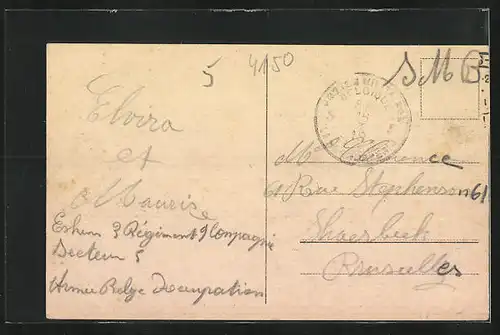 5 4150
S M B
POSTES MILITAIRES
BELGIQUE
Elvira
et
Maurise
Eshem 3 Régiment 9 Compagnie
Secteur 5
Armée Belge Occupation
Mr
61 Rue Stephenson 61
Shaerbeek
Bruxelles